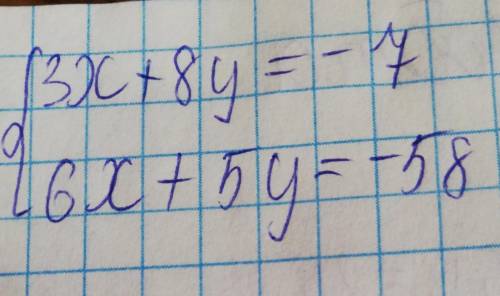 3x+8y=-7
6x+5y=-58